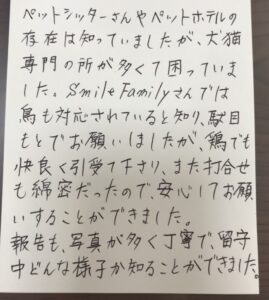 ペットシッターさんやペットホテルの
存在は知っていましたが、犬猫
専門の所が多くて困っていま
した。Smile Familyさんでは
鳥も対応されていると知り、駄目
もとでお願いしましたが、鶏でも
快良く引受て下さり、また打合せ
も綿密だったので、安心してお願
いすることができました。
報告も、写真が多く丁寧で、留守
中どんな様子か知ることができました。